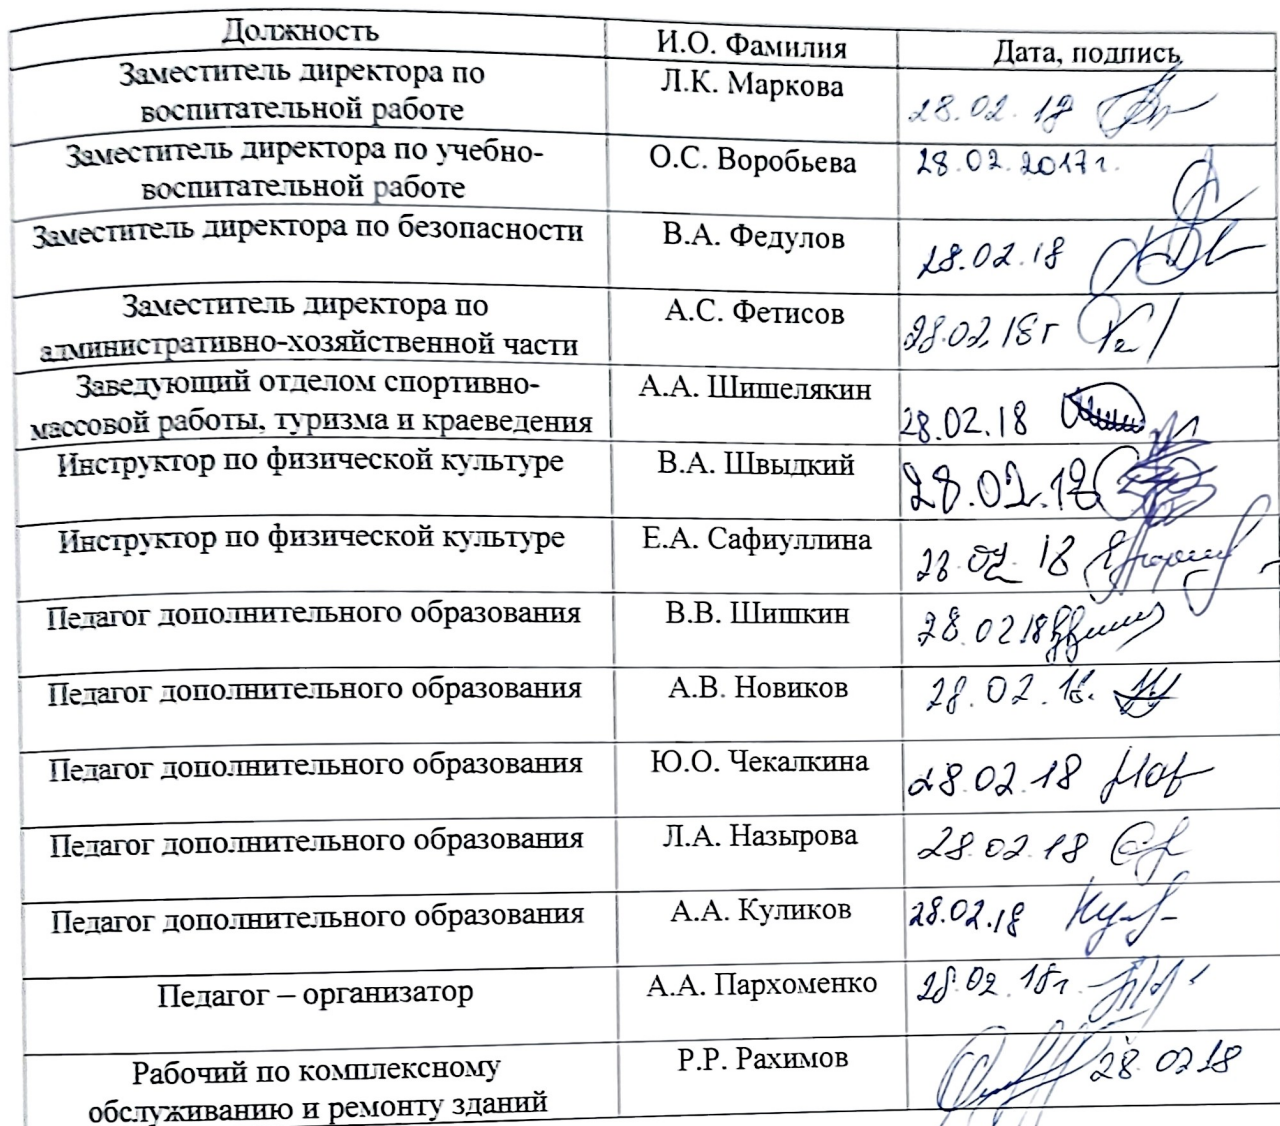 Должность И.О. Фамилия Дата, подпись
Заместитель директора по
воспитательной работе
Л.К. Маркова
28.02.18
Заместитель директора по учебно-
воспитательной работе
О.С. Воробьева
28.02.2017г.
Заместитель директора по безопасности
В.А. Федулов
28.02.18
Заместитель директора по
административно-хозяйственной части
А.С. Фетисов
28.02.18г
Заведующий отделом спортивно-
массовой работы, туризма и краеведения
А.А. Шишелякин
28.02.18
Инструктор по физической культуре
В.А. Швыдкий
28.02.18
Инструктор по физической культуре
Е.А. Сафиуллина
28.02.18
Педагог дополнительного образования
В.В. Шишкин
28.02 18
Педагог дополнительного образования
А.В. Новиков
28.02.18.
Педагог дополнительного образования
Ю.О. Чекалкина
28.02.18
Педагог дополнительного образования
Л.А. Назырова
28.02.18
Педагог дополнительного образования
А.А. Куликов
28.02.18
Педагог – организатор
А.А. Пархоменко
28.02.18г.
Рабочий по комплексному
обслуживанию и ремонту зданий
Р.Р. Рахимов
28.02.18